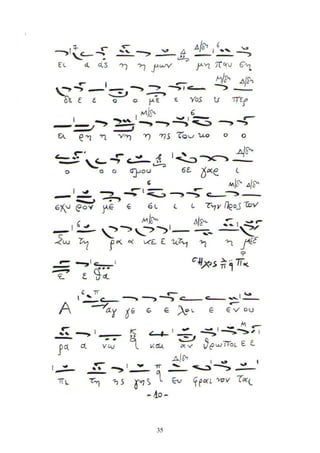 ει α ας η η μων μη παυ ση
δε ε ε ο ο με ε νος υ περ
ει ρη η νη η ης του κο ο ο
ο ο ο σμου σε γαρ ι
σχυ ρον με ε ει ι ι την προς τον
Σω τη ρα α κε ε κτη η η με
ε ε θα Ἦχος π q Πα
Α αγ γε ε ε λοι ε εν ου
ρα α νω και αν θρωποι ε ε
πι τη ης γης Ευ φραι νον ται
- 10 -
35